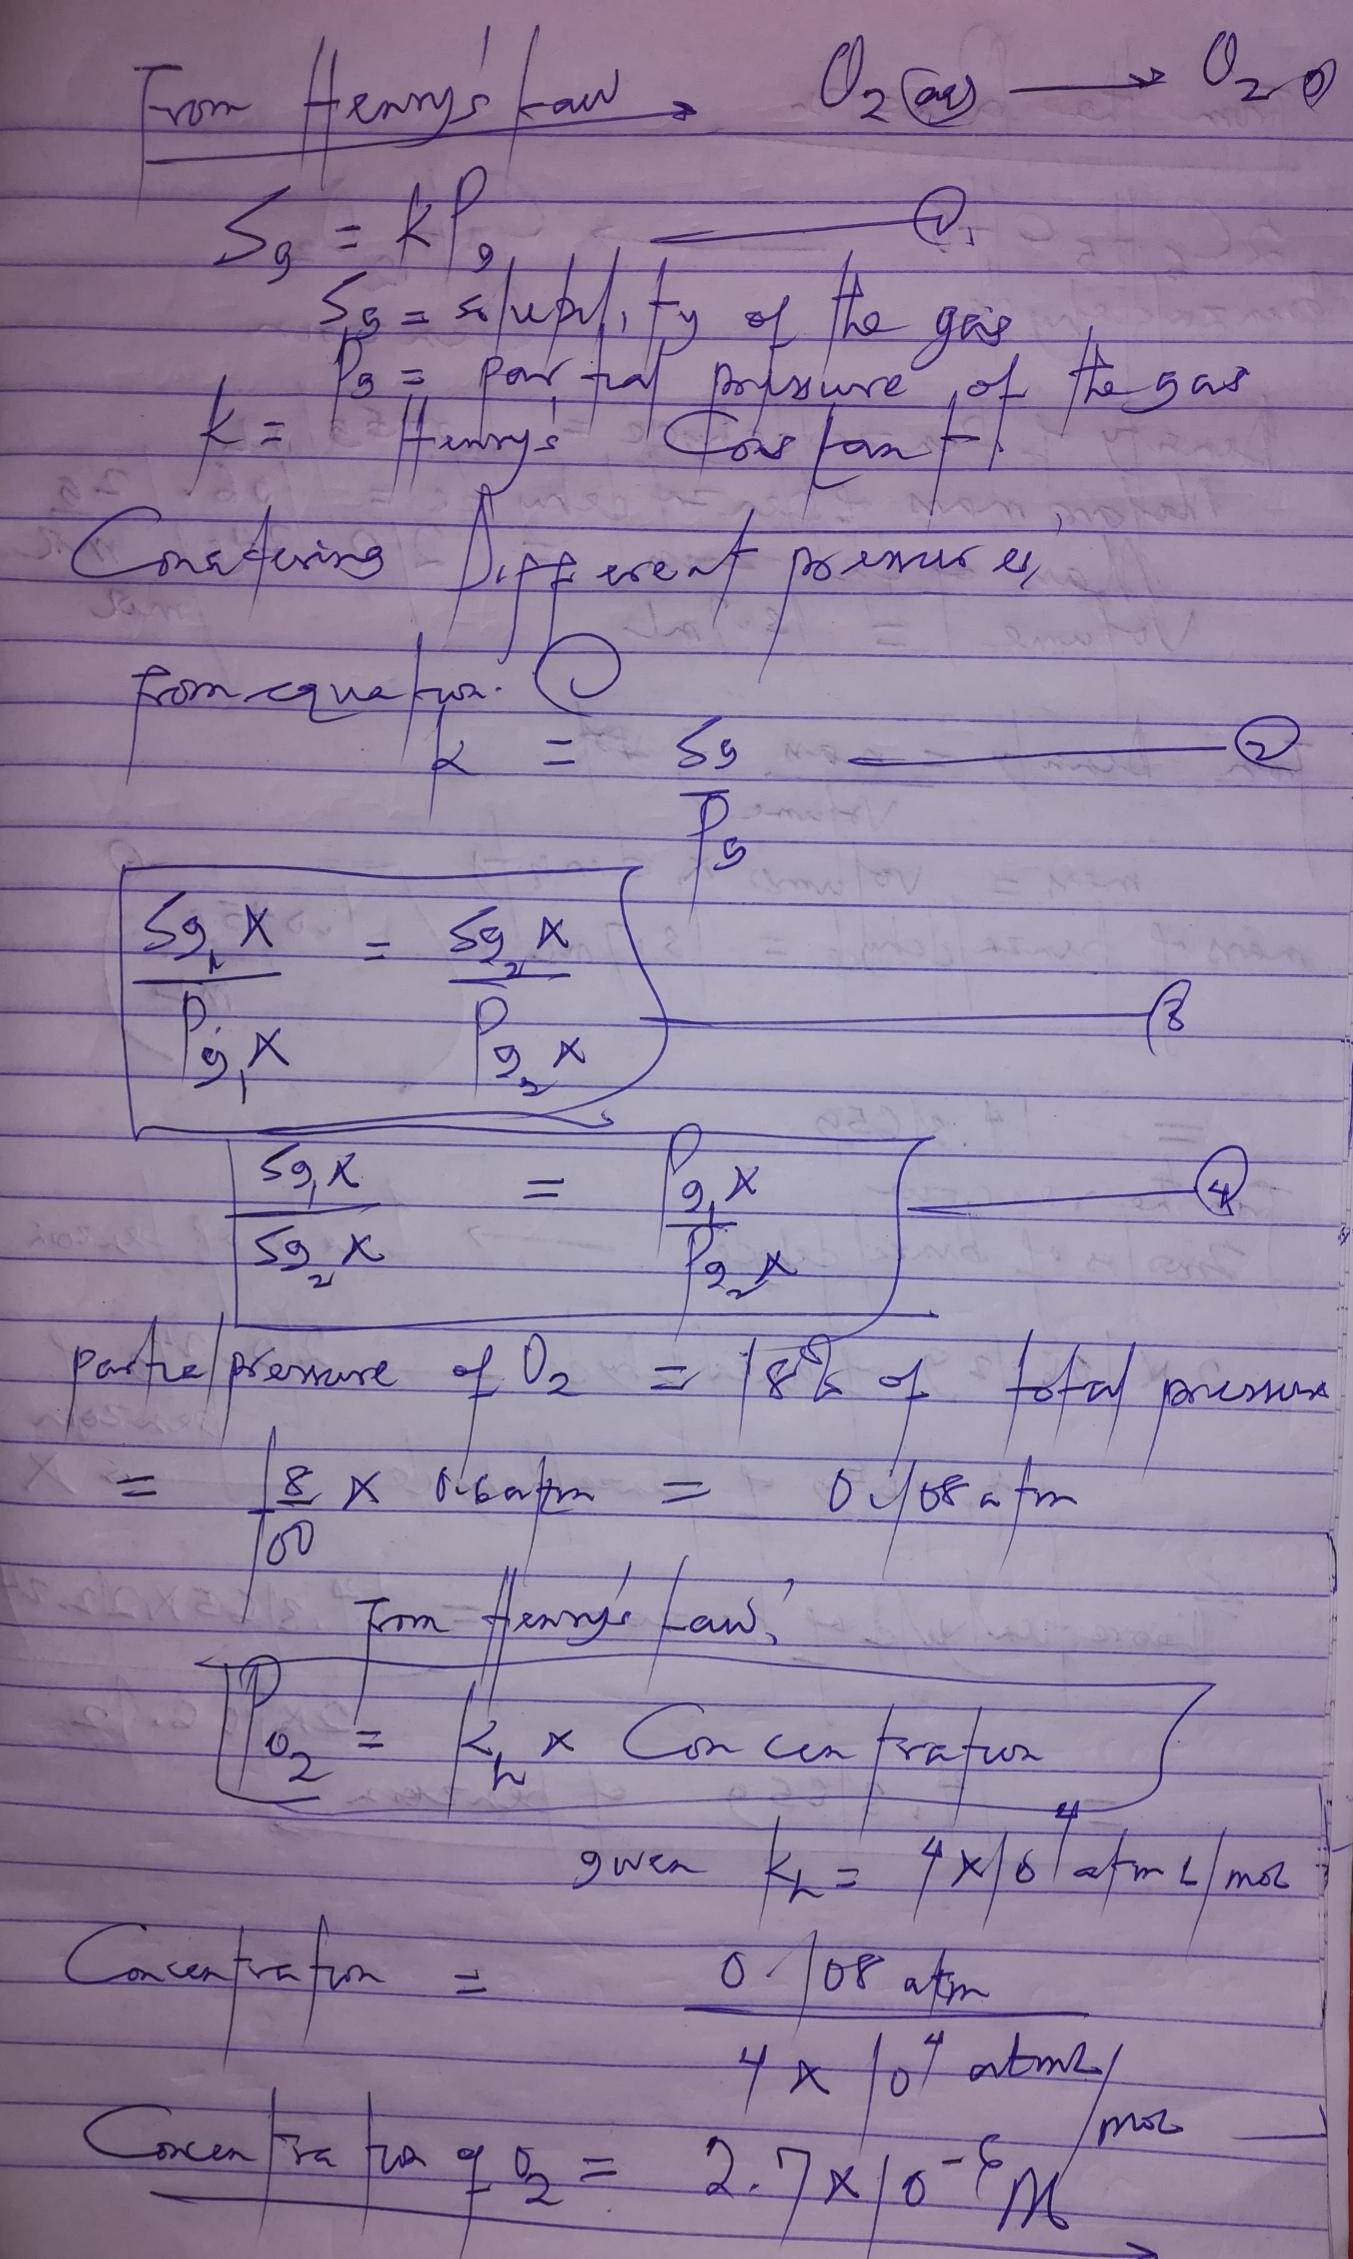 From Henry's Law → O₂(aq) → O₂
Sg = kPg — 1.
Sg = solubility of the gas
Pg = partial pressure of the gas
k = Henry's Constant.
Different pressures,
from equation. 1
k = Sg / Pg — 2
Sg₁X / Pg₁X = Sg₂X / Pg₂X — 3
Sg₁X / Sg₂X = Pg₁X / Pg₂X — 4
partial pressure of O₂ = 18% of total pressure
= 18/100 × 0.6 atm = 0.108 atm
From Henry's Law,
P O₂ = kh × Concentration
given kh = 4×10⁴ atm L/mol
Concentration = 0.108 atm / 4 × 10⁴ atm L/mol
Concentration of O₂ = 2.7×10⁻⁶ M